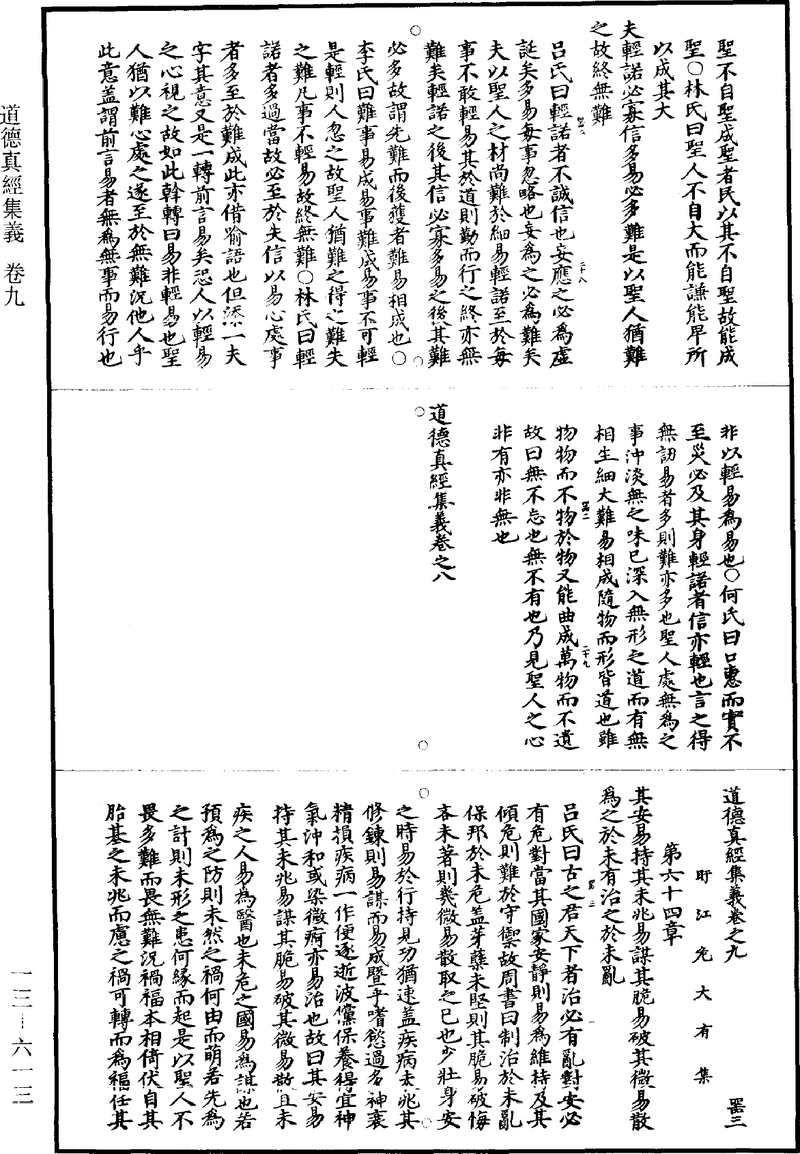 聖不自聖成聖者民以其不自聖故能成
聖○林氏曰聖人不自大而能謙能卑所
以成其大
夫輕諾必寡信多易必多難是以聖人猶難
之故終無難
呂氏曰輕諾者不誠信也妄應之必為虛
誕矣多易每事忽略也妄為之必為難矣
夫以聖人之材尚難於細易輕諾至於每
事不敢輕易其於道則勤而行之終亦無
難矣輕諾之後其信必寡多易之後其難
必多故謂先難而後獲者難易相成也○
李氏曰難事易成易事難成易事不可輕
是輕則人忽之故聖人猶難之得之難失
之難凡事不輕易故終無難○林氏曰輕
諾者多過當故必至於失信以易心處事
者多至於難成此亦借喻語也但添一夫
字其意又是一轉前言易矣恐人以輕易
之心視之故如此斡轉曰易非輕易也聖
人猶以難心處之遂至於無難況他人乎
此意蓋謂前言易者無為無事而易行也
非以輕易為易也○何氏曰口惠而實不
至災必及其身輕諾者信亦輕也言之得
無訒易者多則難亦多也聖人處無為之
事沖淡無之味已深入無形之道而有無
相生細大難易相成隨物而形皆道也雖
物物而不物於物又能曲成萬物而不遺
故曰無不忘也無不有也乃見聖人之心
非有亦非無也
道德真經集義卷之八
道德真經集義卷之九
盱江危大有集
第六十四章
其安易持其未兆易謀其脆易破其微易散
為之於未有治之於未亂
呂氏曰古之君天下者治必有亂對安必
有危對當其國家安靜則易為維持及其
傾危則難於守禦故周書曰制治於未亂
保邦於未危蓋芽蘖未堅則其脆易破悔
吝未著則幾微易散取之已也少壯身安
之時易於行持見功猶速蓋疾病未兆其
修鍊則易謀而易成暨乎嗜慾過多神衰
精損疾病一作便逐逝波儻保養得宜神
氣沖和或染微痾亦易治也故曰其安易
持其未兆易謀其脆易破其微易散且未
疾之人易為醫也未危之國易為謀也若
預為之防則未然之禍何由而萌若先為
之計則未形之患何緣而起是以聖人不
畏多難而畏無難況禍福本相倚伏自其
胎基之未兆而慮之禍可轉而為福任其
道德真經集義　卷九
一三—六一三